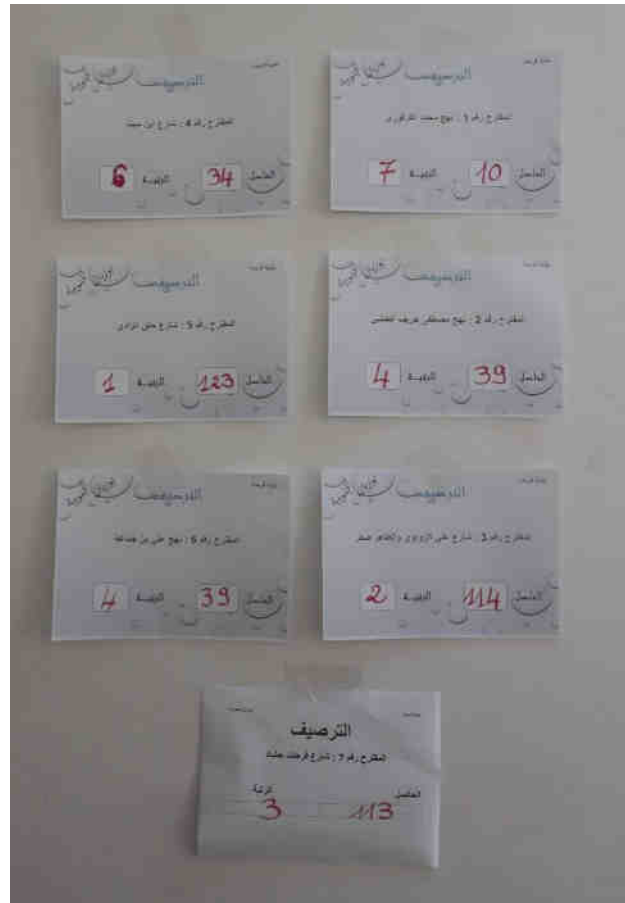 الترصيف
المقترح رقم 1 : نهج محمد القرقوري
الحاصل 10 الرتبة 7
الترصيف
المقترح رقم 4 : شارع ابن سينا
الحاصل 34 الرتبة 6
الترصيف
المقترح رقم 2 : نهج مصطفى خريف
الحاصل 39 الرتبة 4
الترصيف
المقترح رقم 5 : شارع
الحاصل 123 الرتبة 1
الترصيف
المقترح رقم 3 : شارع علي الزواوي والطاهر صفر
الحاصل 114 الرتبة 2
الترصيف
المقترح رقم 6 : نهج علي بن جماعة
الحاصل 39 الرتبة 4
الترصيف
المقترح رقم 7 : شارع فرحات حشاد
الحاصل 113 الرتبة 3